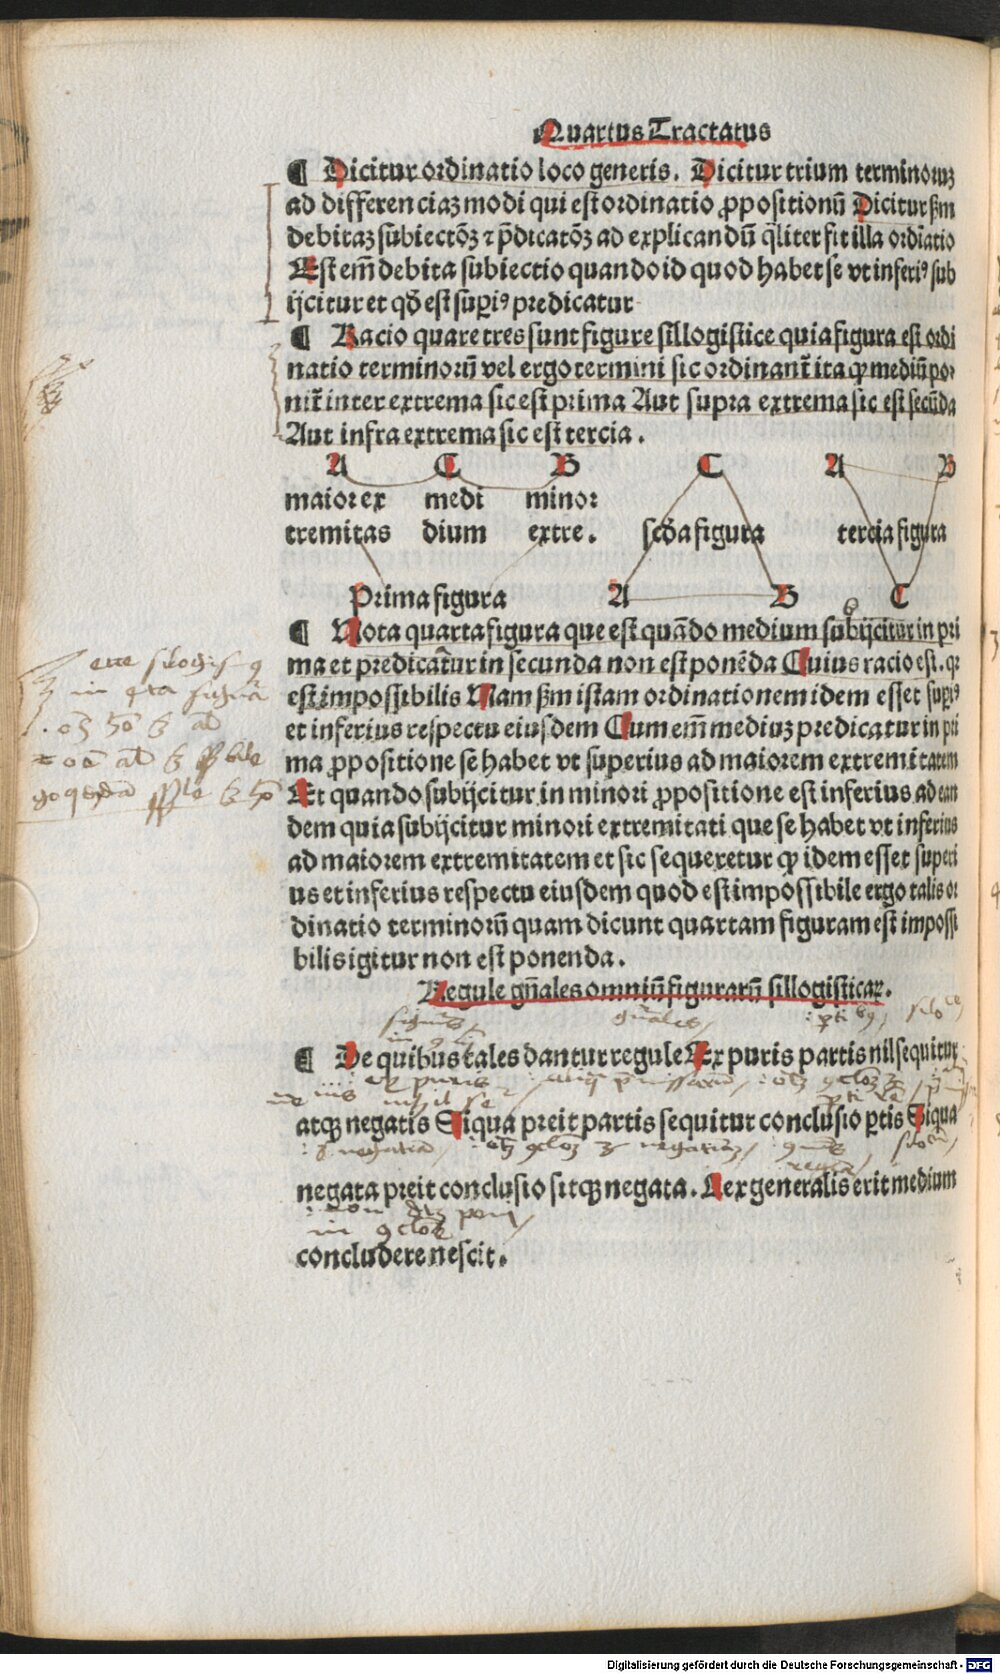 Quartus Tractatus
¶ Dicitur ordinatio loco generis. Dicitur trium terminoꝝ
ad differenciaꝫ modi qui est ordinatio ꝓpositionū Dicitur ẜm
debitaꝫ subiectōꝫ ⁊ p̄dicatōꝫ ad explicandū qͣliter fit illa ordīatio
Est em̄ debita subiectio quando id quod habet se vt inferiꝰ sub
ijcitur et qd̄ est suꝑiꝰ predicatur
¶ Racio quare tres sunt figure sillogistice quia figura est ordi
natio terminorū vel ergo termini sic ordinant̄ ita ꝙ mediū po
nit̄ inter extrema sic est prima Aut supra extrema sic est secūda
Aut infra extrema sic est tercia.
A C B C A B
maior ex medi minor
tremitas dium extre. scd̄a figura tercia figura
Prima figura A B C
¶ Nota quarta figura que est quādo medium subijcitur in pri
ma et predicatur in secunda non est ponēda Cuius racio est. qꝛ
est impossibilis Nam ẜm istam ordinationem idem esset suꝑiꝰ
et inferius respectu eiusdem Cum em̄ mediuꝫ predicatur in pri
ma ꝓpositione se habet vt superius ad maiorem extremitatem
Et quando subijcitur in minori ꝓpositione est inferius ad ean
dem quia subijcitur minori extremitati que se habet vt inferius
ad maiorem extremitatem et sic sequeretur ꝙ idem esset superi
us et inferius respectu eiusdem quod est impossibile ergo talis or
dinatio terminorū quam dicunt quartam figuram est impossi
bilis igitur non est ponenda.
Regule gn̄ales omniū figurarū sillogisticaꝝ.
¶ De quibus tales dantur regule Ex puris partis nil sequitur
ex puris
atqꝫ negatis Si qua preit partis sequitur conclusio ꝑtis Si qua
negata preit conclusio sitqꝫ negata. Lex generalis erit medium
concludere nescit.
Digitalisierung gefördert durch die Deutsche Forschungsgemeinschaft - DFG